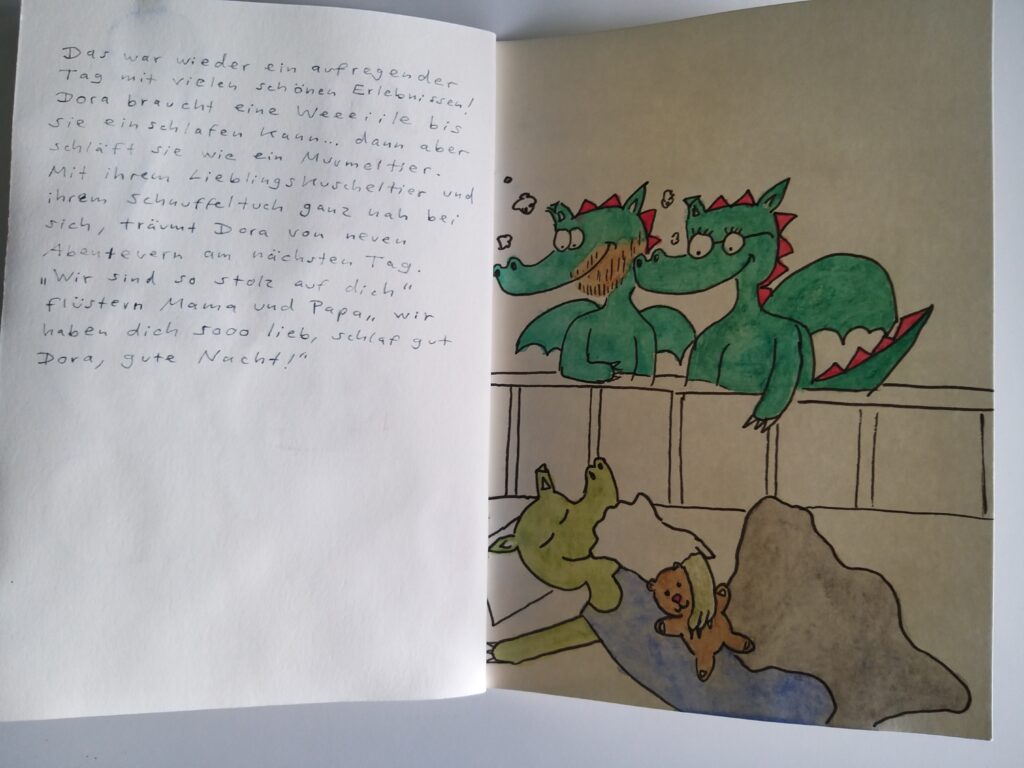 Das war wieder ein aufregender
Tag mit vielen schönen Erlebnissen!
Dora braucht eine Weeeiile bis
sie einschlafen kann... dann aber
schläft sie wie ein Murmeltier.
Mit ihrem Lieblingskuscheltier und
ihrem Schnuffeltuch ganz nah bei
sich, träumt Dora von neuen
Abenteuern am nächsten Tag.
„Wir sind so stolz auf dich"
flüstern Mama und Papa„ wir
haben dich sooo lieb, schlaf gut
Dora, gute Nacht!"